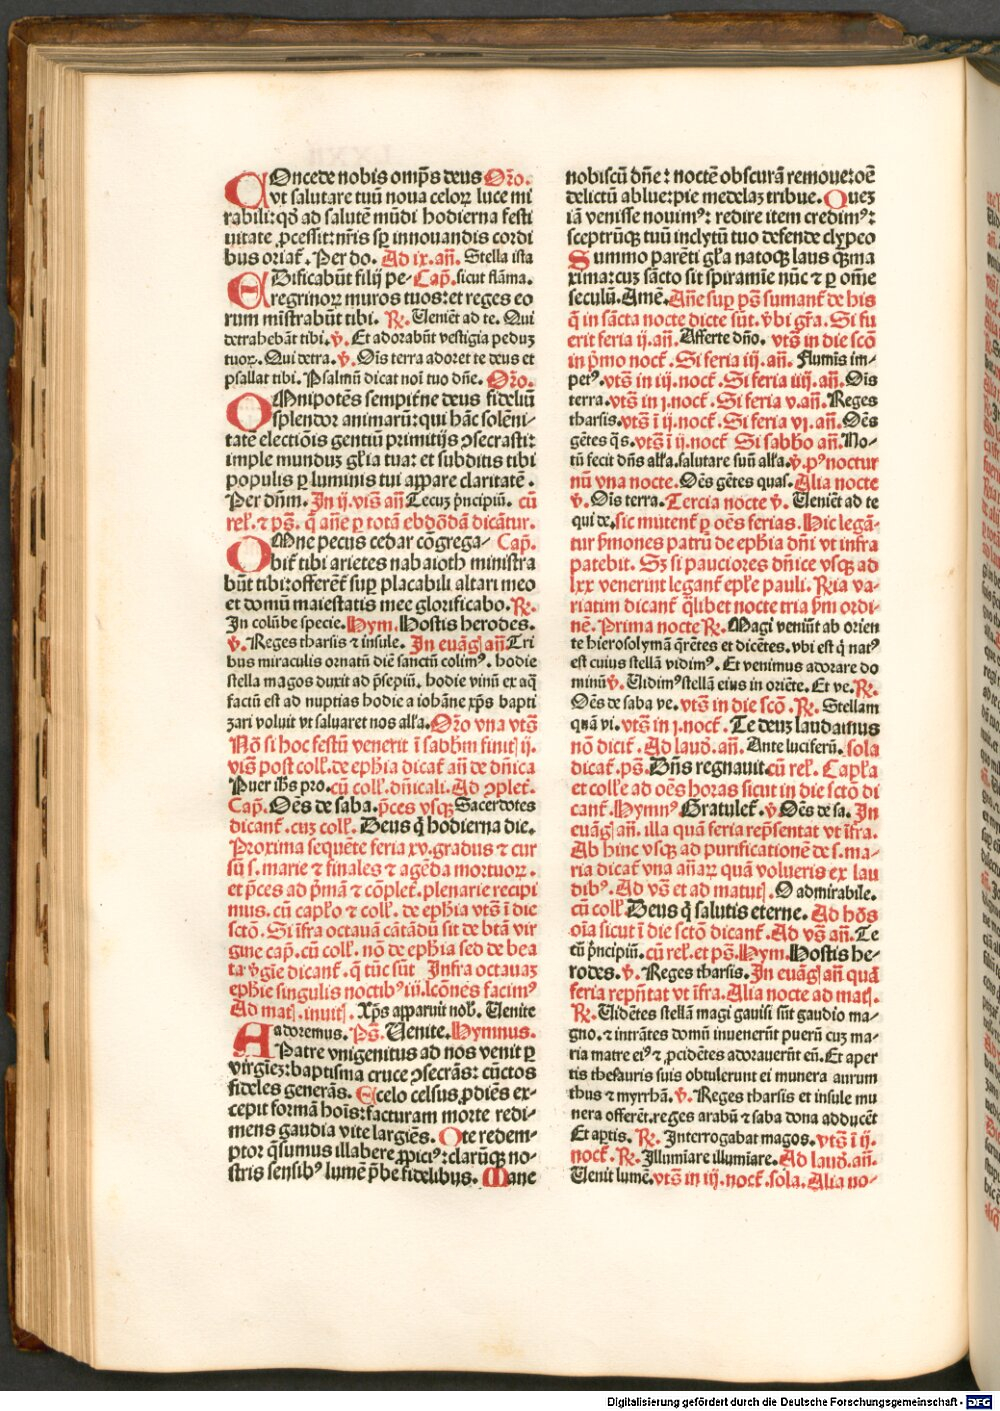 COncede nobis omp̄s deus Or̄o.
vt salutare tuū noua celoꝝ luce mi
rabili:qꝫ ad salutē mūdi hodierna festi
uitate ꝓcessit:nr̄is sꝑ innouandis cordi
bus oriat̄. Per do. Ad ix.an̄. Stella ista
EDificabūt filij pe- Cap̄. sicut flāma.
regrinoꝝ muros tuos:et reges eo
rum mīstrabūt tibi. R̄. Ueniēt ad te. Qui
detrahebāt tibi. v̄. Et adorabūt vestigia peduꝫ
tuoꝝ. Qui detra. v̄. Oīs terra adoret te deus et
psallat tibi. Psalmū dicat noī tuo dn̄e. Or̄o.
OMnipotēs sempit̄ne deus fideliū
splendor animarū:qui hāc solēni-
tatē electiōis gentiū primitijs ↄsecrasti:
imple munduꝫ gl̄ia tua: et subditis tibi
populis ꝑ luminis tui appare claritatē.
Per dn̄m. In ij. vīs an̄ Tecuꝫ p̄ncipiū. cū
rel̄. ⁊ pꝭ. q̄ an̄e ꝑ totā ebdōdā dicātur.
OMne pecus cedar cōgrega- Cap̄.
bit̄ tibi arietes nabaioth ministra
būt tibi:offerēt̄ suꝑ placabili altari meo
et domū maiestatis mee glorificabo. R̄.
In colūbe specie. Hym. Hostis herodes.
v̄. Reges tharsis ⁊ insule. In euāḡ an̄ Tri
bus miraculis ornatū diē sanctū colimꝰ. hodie
stella magos duxit ad p̄sepiū. hodie vinū ex aq̄
factū est ad nuptias hodie a iohāne xp̄s bapti
zari voluit vt saluaret nos all̄a. Or̄o vna vtꝭ
Nō si hoc festū venerit ī sabb̄m finit̄ ij.
vīs post coll̄. de eph̄ia dicat̄ an̄ de dn̄ica
Puer ih̄s pro. cū coll̄. dn̄icali. Ad ↄplet̄.
Cap̄. Oēs de saba. p̄ces vsqꝫ Sacerdotes
dicant̄. cuꝫ coll̄. Deus q̄ hodierna die.
Proxima sequēte feria xv. gradus ⁊ cur
sū s. marie ⁊ finales ⁊ agēda mortuoꝝ.
et p̄ces ad p̄mā ⁊ cōplet̄. plenarie recipi
mus. cū capl̄o ⁊ coll̄. de eph̄ia vtꝭ ī die
sctō. Si īfra octauā cātādū sit de btā vir
gine cap̄. cū coll̄. nō de eph̄ia sed de bea
ta v̄gīe dicant̄. q̄ tūc sūt Infra octauaꝫ
eph̄ie singulis noctibꝰ iij. lc̄ōnes facimꝰ
Ad mat̄. inuit̄. Xp̄s apparuit nob̄. Uenite
adoremus. Pꝭ. Uenite. Hymnus.
A Patre vnigenitus ad nos venit ꝑ
virgīeꝫ:baptisma cruce ↄsecrās: cūctos
fideles generās. E celo celsus ꝓdiēs ex-
cepit formā hoīs:facturam morte redi-
mens gaudia vite largiēs. O te redem-
ptor q̄sumus illabere ꝓpiciꝰ:clarūqꝫ no-
stris sensibꝰ lumē p̄be fidelibus. Mane
nobiscū dn̄e: noctē obscurā remoue:oē
delictū ablue:pie medelaꝫ tribue. Queꝫ
iā venisse nouimꝰ: redire item credimꝰ:
sceptrūqꝫ tuū inclytū tuo defende clypeo
Summo parēti gl̄a natoqꝫ laus qꝫma
xima:cuꝫ sācto sit spiramīe nūc ⁊ ꝑ om̄e
seculū. Amē. An̄e suꝑ pꝭ sumant̄ de his
q̄ in sācta nocte dicte sūt. vbi gr̄a. Si fu
erit feria ij. an̄. Afferte dn̄o. vtꝭ in die scō
in p̄mo noct̄. Si feria iij. an̄. Flumīs im-
petꝰ. vtꝭ in iij. noct̄. Si feria iiij. an̄. Oīs
terra. vtꝭ in j. noct̄. Si feria v. an̄. Reges
tharsis. vtꝭ ī ij. noct̄. Si feria vj. an̄. Oēs
gētes q̄s. vtꝭ ī ij. noct̄. Si sabb̄o an̄. No-
tū fecit dn̄s all̄a. salutare suū all̄a. v̄. pꝰ noctur
nū vna nocte. Oēs gētes quas. Alia nocte
v̄. Oīs terra. Tercia nocte v̄. Ueniēt ad te
qui de. sic mutent̄ ꝑ oēs ferias. Hic legā-
tur p̄mones patrū de eph̄ia dn̄i vt infra
patebit. Sꝫ si pauciores dn̄ice vsqꝫ ad
lxx venerint legant̄ epl̄e pauli. R̄ia va-
riatim dicant̄ q̄libet nocte tria p̄m ordi-
nē. Prima nocte R̄. Magi veniūt ab orien
te hierosolymā q̄rētes et dicētes. vbi est q̄ natꝰ
est cuius stellā vidimꝰ. Et venimus adorare do
minū v̄. Uidimꝰ stellā eius in oriēte. Et ve. R̄.
Oēs de saba ve. vtꝭ in die scō. R̄. Stellam
quā vi. vtꝭ in j. noct̄. Te deuꝫ laudamus
nō dicit̄. Ad laud̄. an̄. Ante luciferū. sola
dicat̄. pꝭ. Dn̄s regnauit. cū rel̄. Capl̄a
et coll̄e ad oēs horas sicut in die sctō di
cant̄. Hymnꝰ Gratulet̄. v̄ Oēs de sa. In
euāḡ an̄. illa quā feria rep̄sentat vt īfra.
Ab hinc vsqꝫ ad purificationē de s. ma-
ria dicat̄ vna an̄aꝝ quā volueris ex lau
dibꝰ. Ad vꝭ et ad matut̄. O admirabile.
cū coll̄ Deus q̄ salutis eterne. Ad hōs
oīa sicut ī die sctō dicant̄. Ad vꝭ an̄. Te
cū p̄ncipiū. cū rel̄. et pꝭ. Hym. Hostis he-
rodes. v̄. Reges tharsis. In euāḡ an̄ quā
feria rep̄ntat vt īfra. Alia nocte ad mat̄.
R̄. Uidētes stellā magi gauisi sūt gaudio ma-
gno. ⁊ intrātes domū inuenerūt puerū cuꝫ ma-
ria matre eiꝰ ⁊ ꝓcidētes adorauerūt eū. Et aper
tis thesauris suis obtulerunt ei munera aurum
thus ⁊ myrrhā. v̄. Reges tharsis et insule mu
nera offerēt. reges arabū ⁊ saba dona adducēt
Et aꝑtis. R̄. Interrogabat magos. vtꝭ ī ij.
noct̄. R̄. Illumīare illumīare. Ad laud̄. an̄.
Uenit lumē. vtꝭ in iij. noct̄. sola. Alia no-
Digitalisierung gefördert durch die Deutsche Forschungsgemeinschaft - DFG